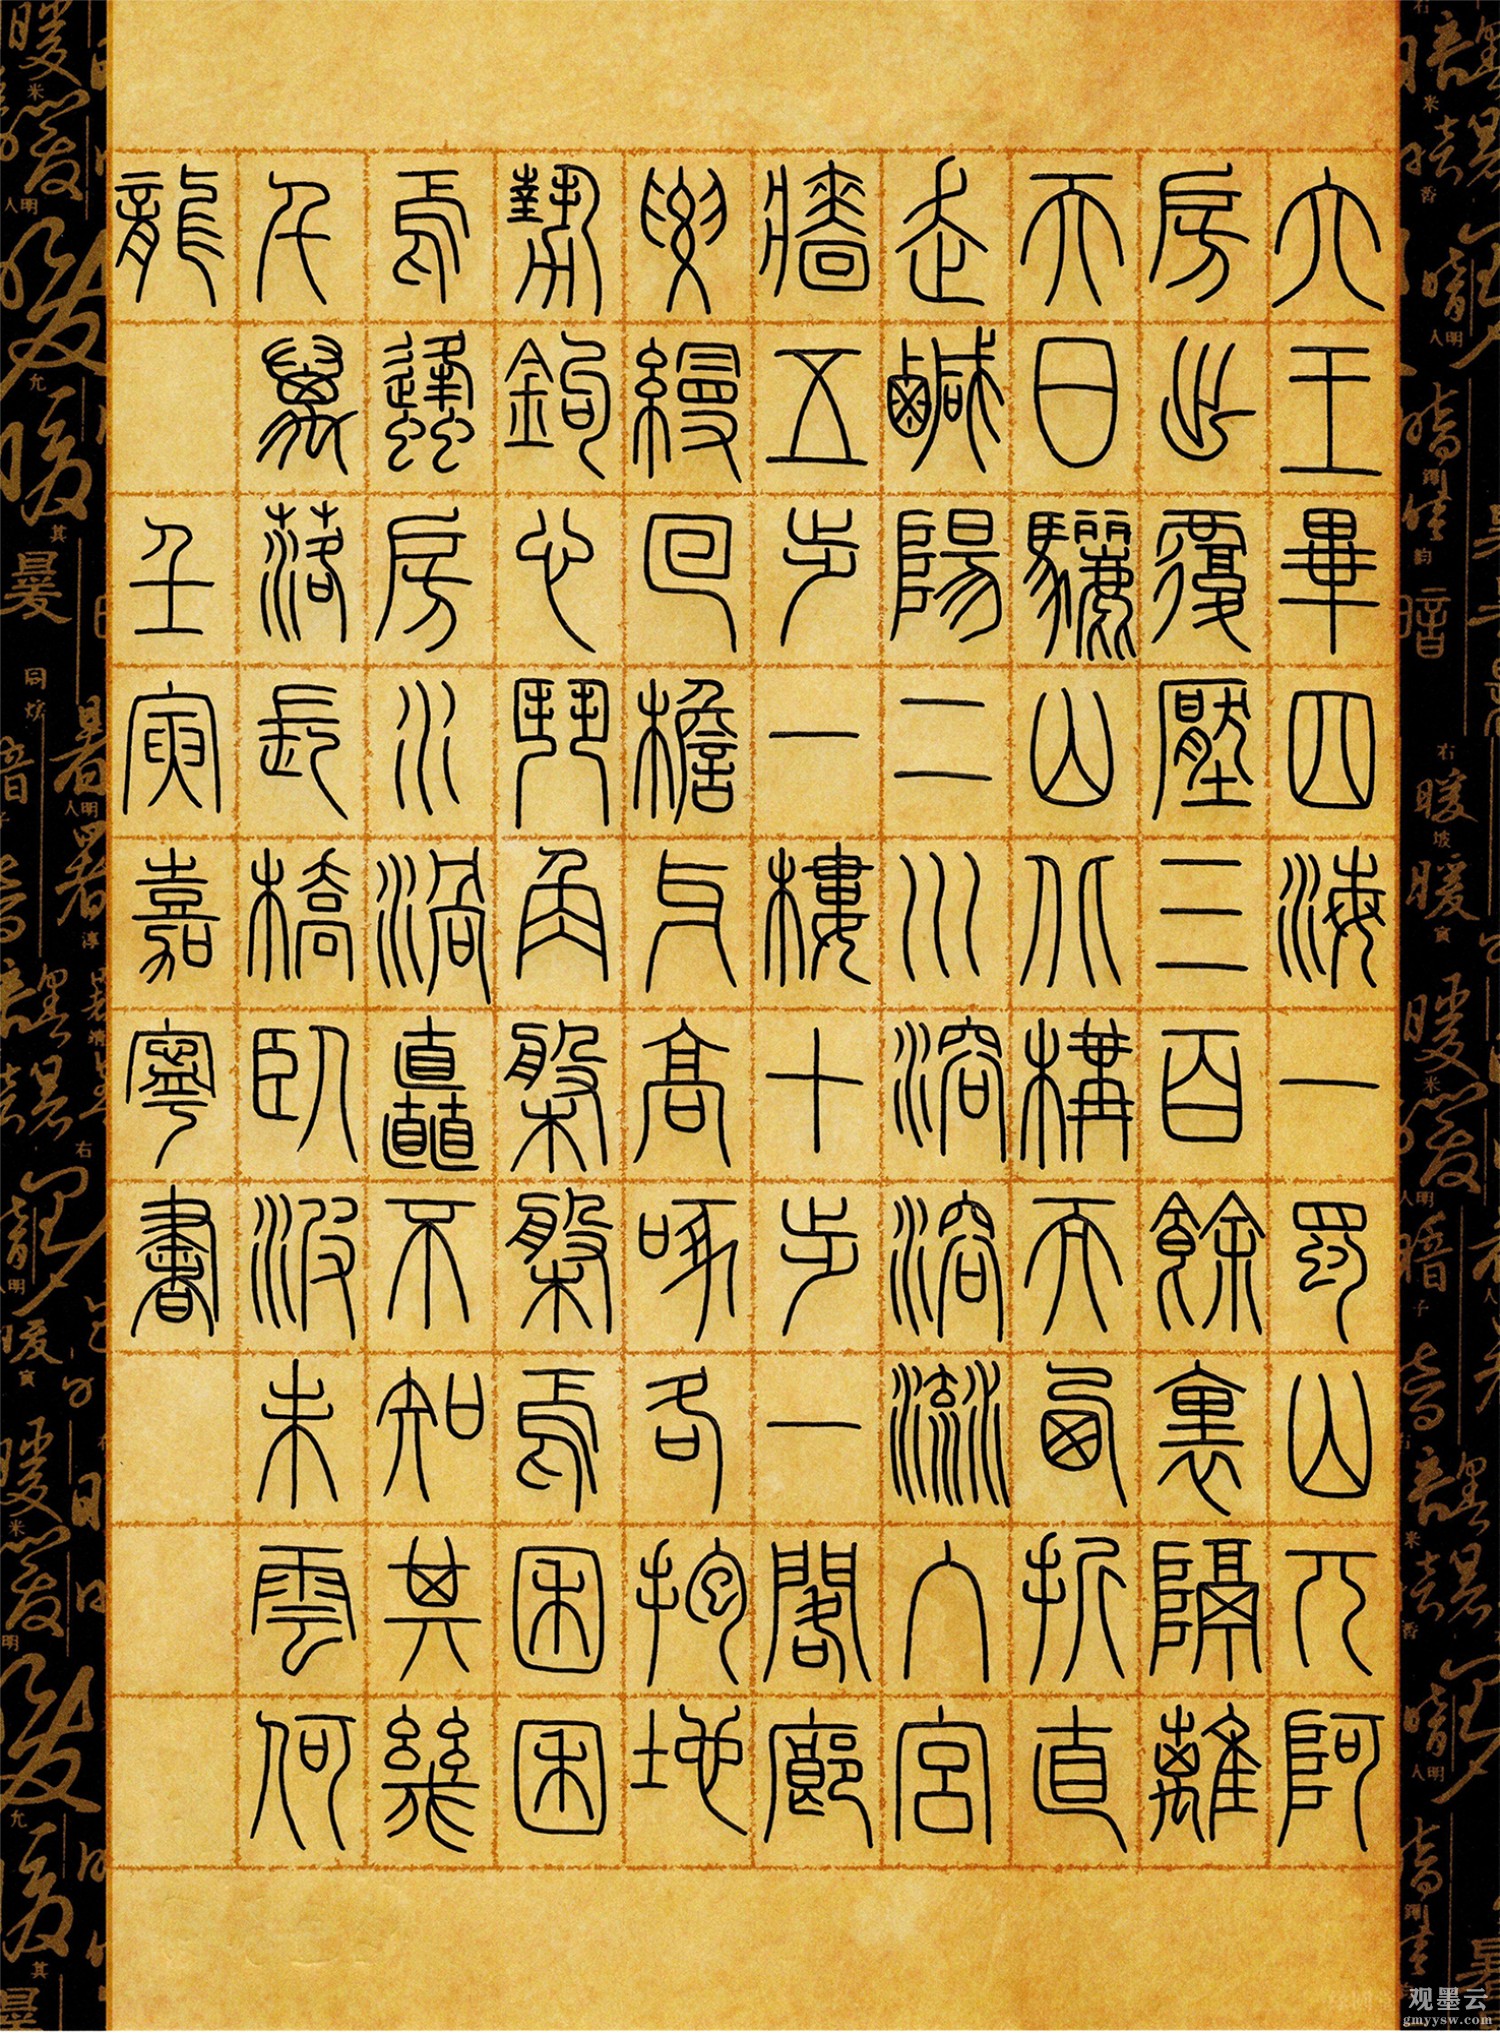 六王畢四海一蜀山兀阿
房出覆壓三百餘裏隔離
天日驪山北構而西折直
走鹹陽二川溶溶流入宮
牆五步一樓十步一閣廊
要縵回檐牙高啄各抱地
勢鉤心鬥角槃槃焉囷囷
焉蠭房水渦矗不知其幾
千萬落長橋臥波未雲何
龍 壬寅嘉寧書
观墨云
gmyysw.com